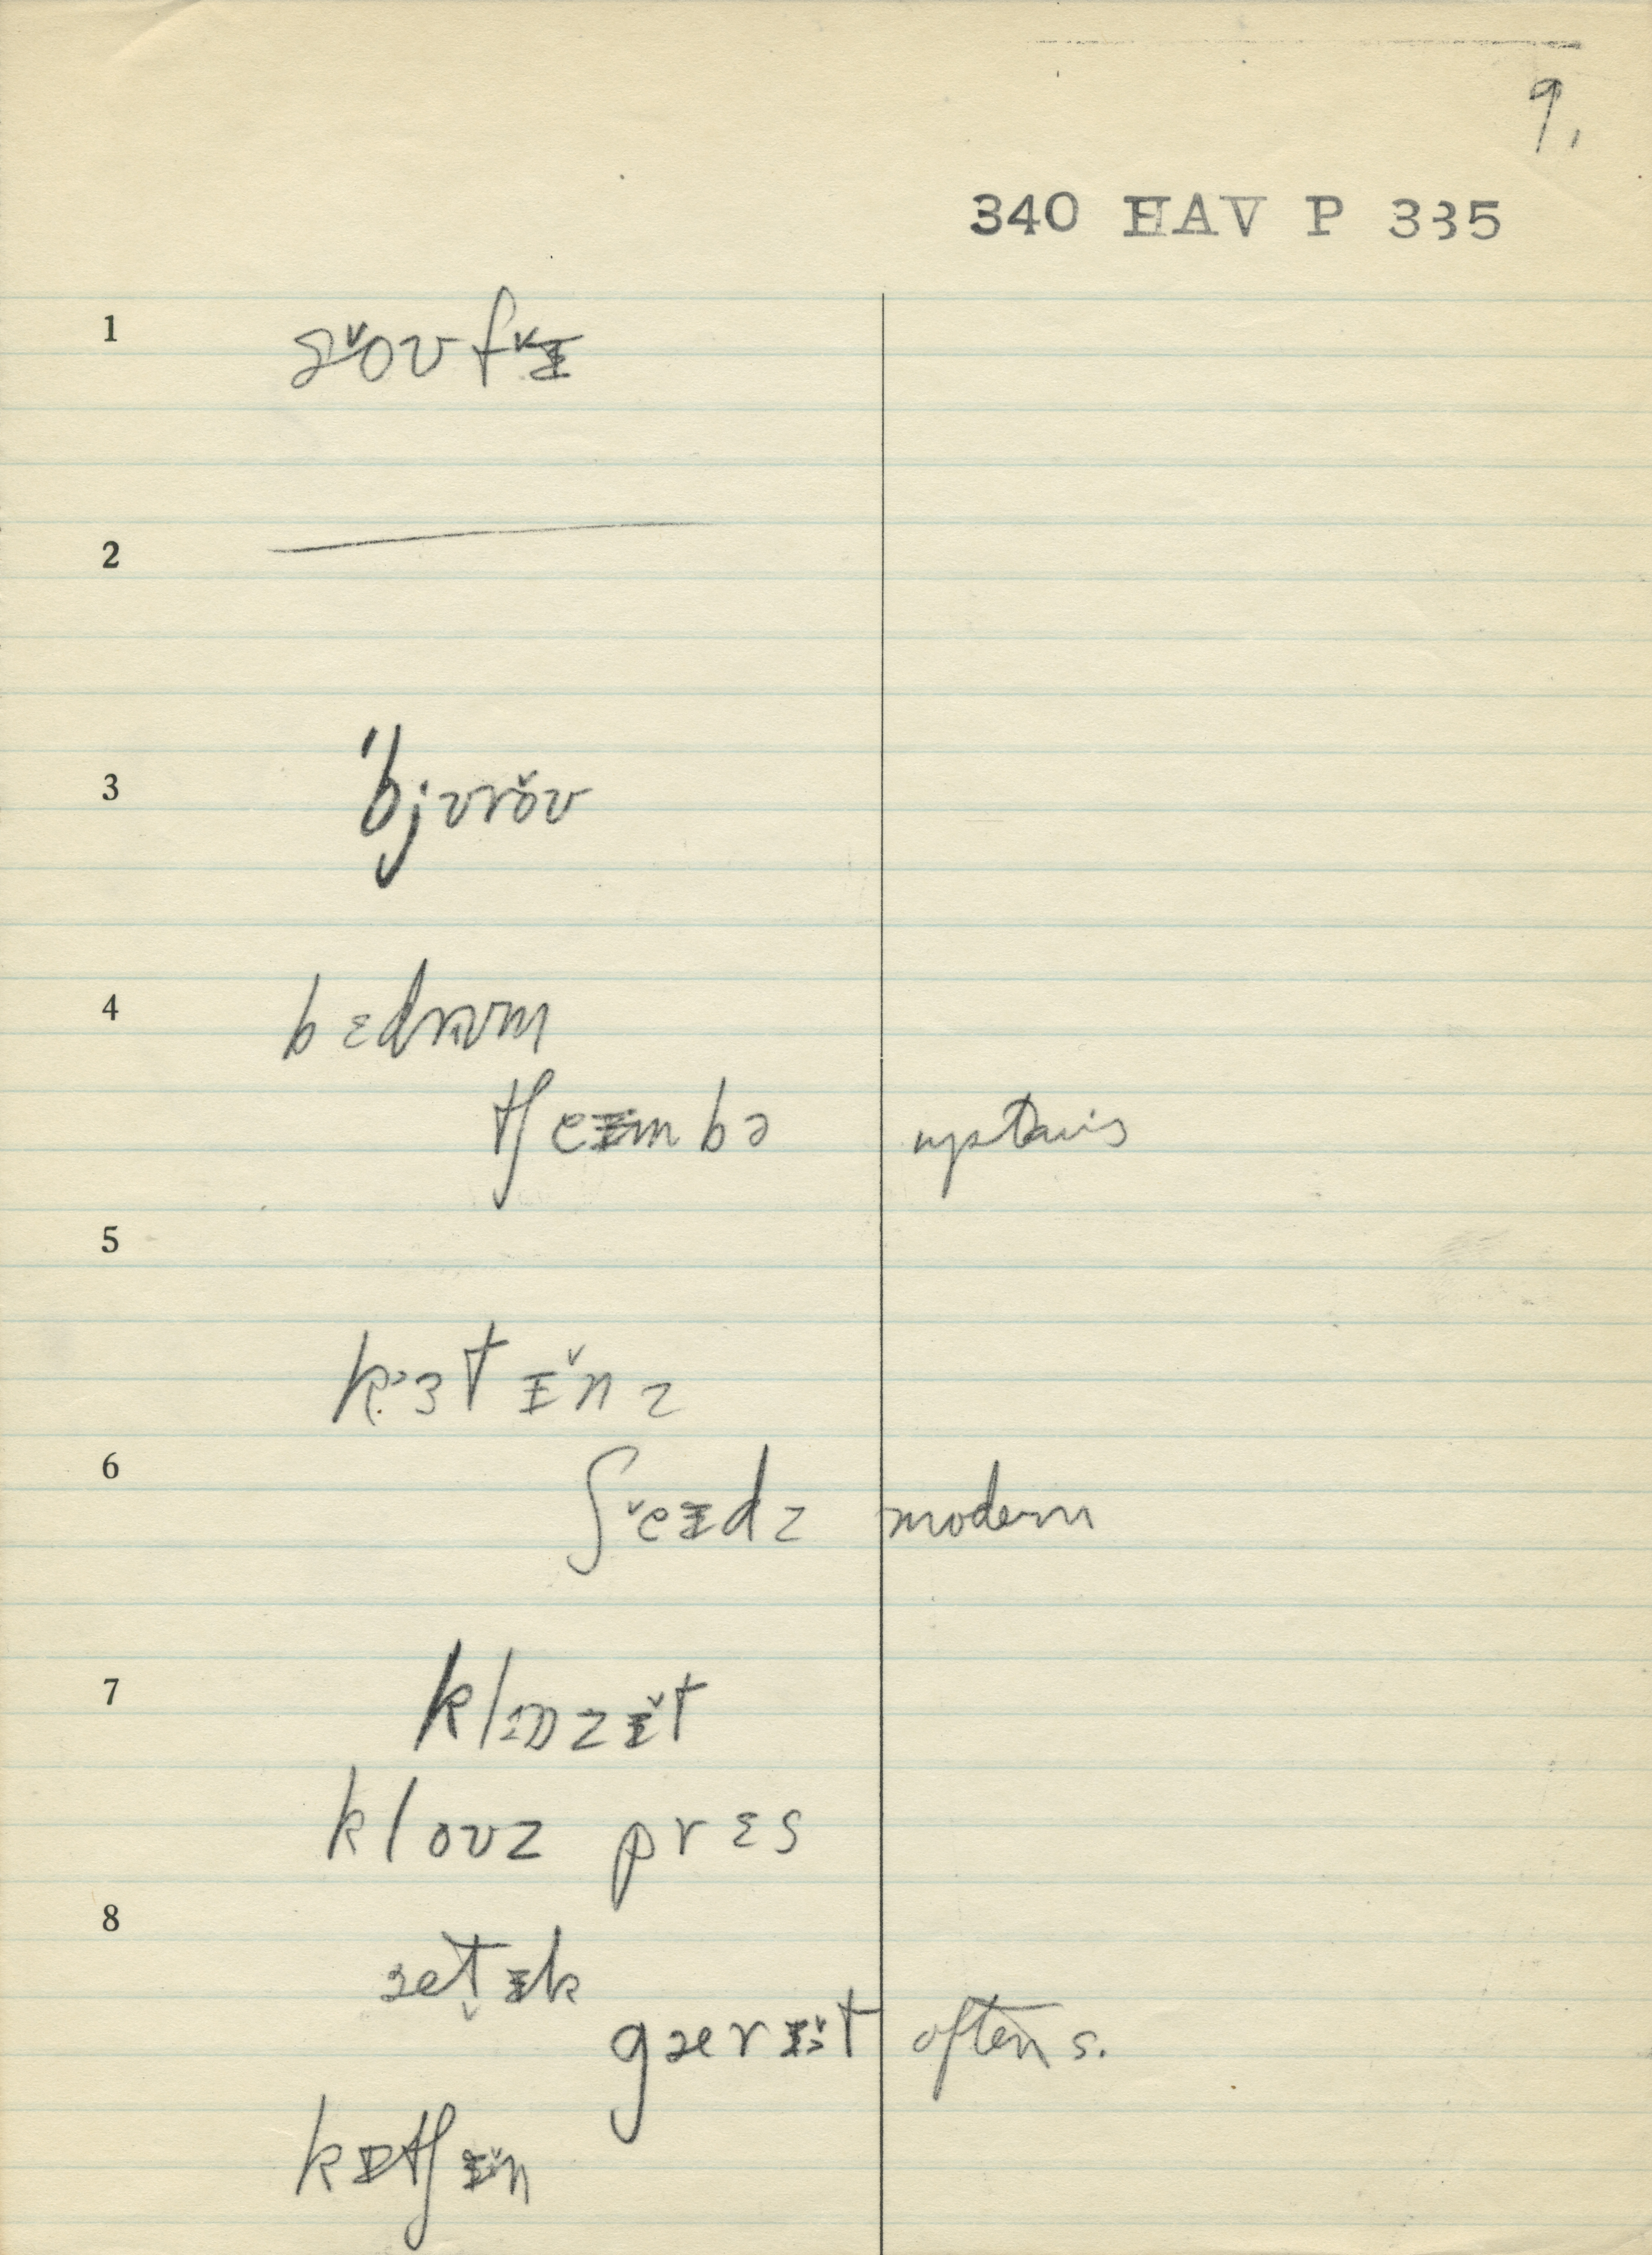 9.
340 HAV P 335
1
2
3 'bjʊrŏʊ
4 bɛdrʊm
tʃeɪmbə upstairs
5
kɜtɪ̆nz
6
ʃĕɪdz modern
7
klɒzɪ̆t
kloʊz prɛs
8
ætɪk
gærɪ̆t often s.
kɪtʃɪ̆n